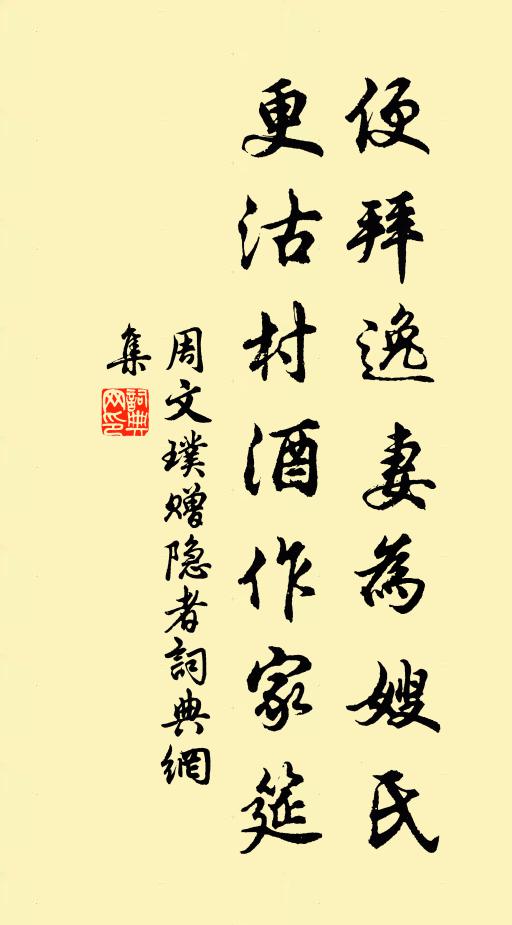 便拜逸妻為嫂氏
更沽村酒作家筵
周文璞赠隐者詞典網
集
詞典
网印